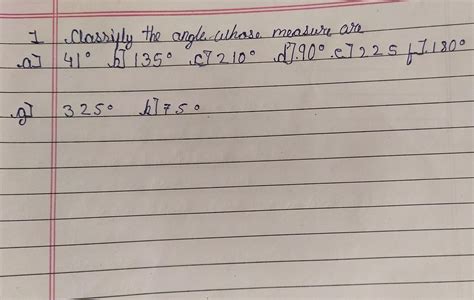 1 Classify the angle whose measure are
a] 41° b] 135° c] 210° d] 90° e] 225 f] 180°
g] 325° h] 75°